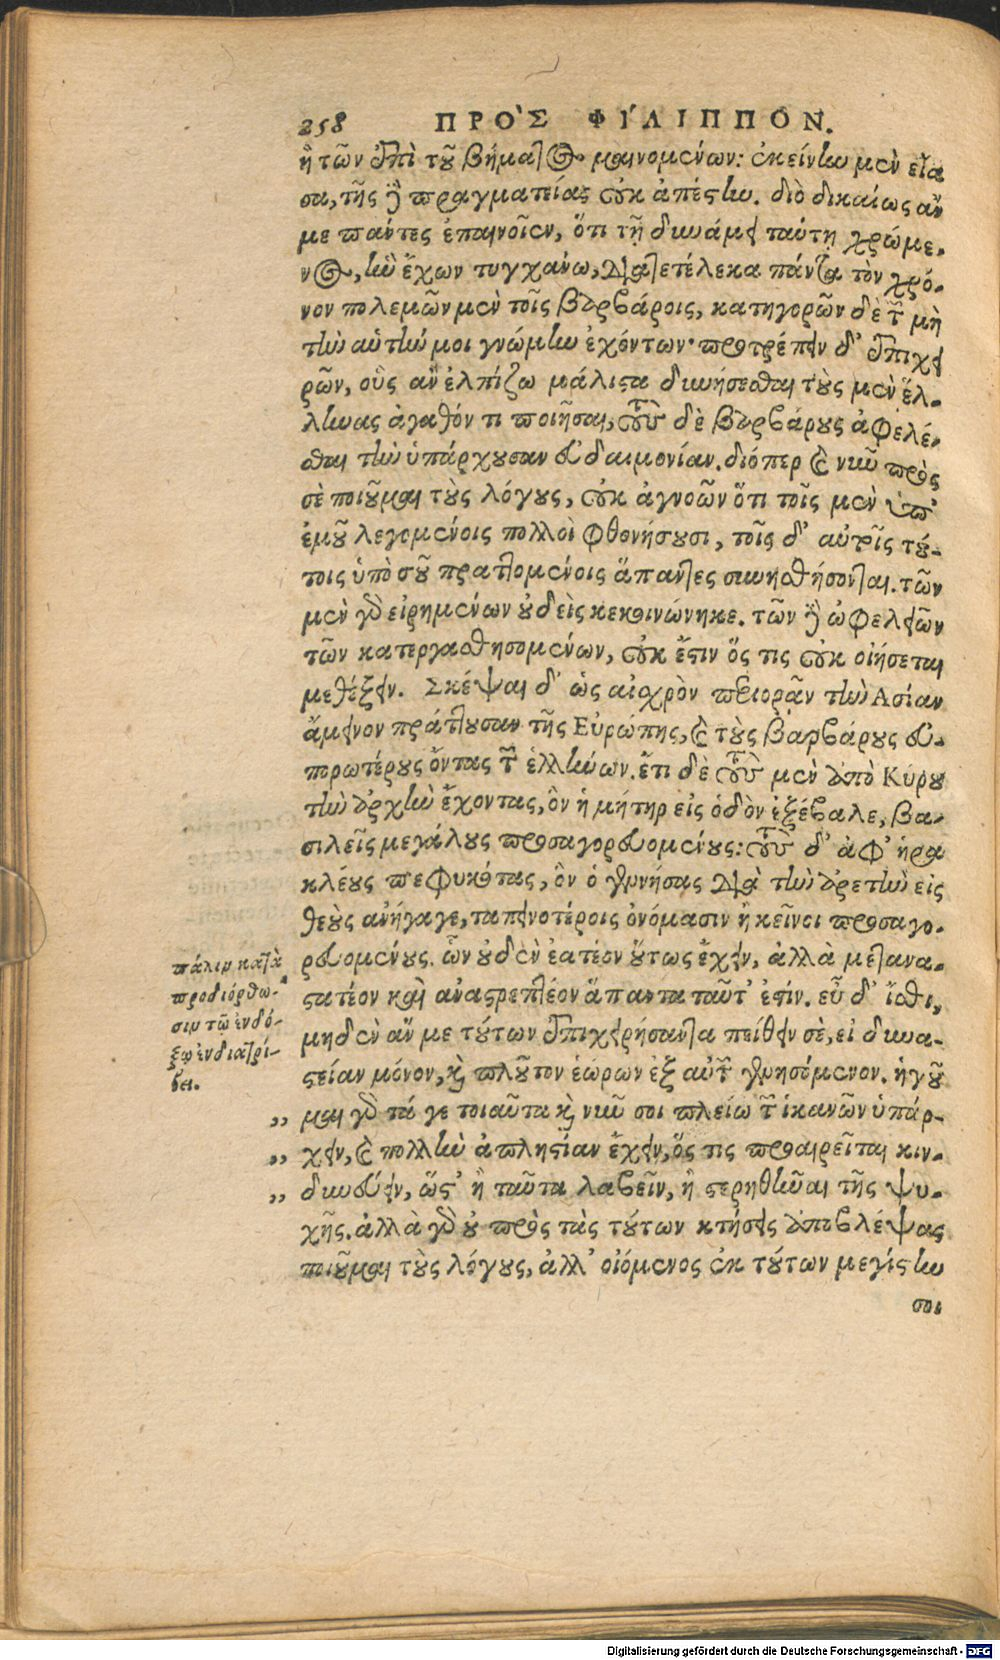 258 ΠΡῸΣ ΦΊΛΙΠΠΟΝ.
ἢ τῶν ἐπὶ τοῦ βήματος μαινομένων: ἐκείνην μὲν εἴα
σα, τῆς δὲ πραγματείας οὐκ ἀπέστην. διὸ δικαίως ἄν
με πάντες ἐπαινοῖεν, ὅτι τῇ δυνάμει ταύτῃ χρώμε-
νος, ἣν ἔχων τυγχάνω, διατετέλεκα πάντα τὸν χρό-
νον πολεμῶν μὲν τοῖς βαρβάροις, κατηγορῶν δὲ τῶν μὴ
τὴν αὐτήν μοι γνώμην ἐχόντων· προτρέπειν δ' ἐπιχει
ρῶν, οὓς ἂν ἐλπίζω μάλιστα δυνήσεσθαι τοὺς μὲν ἕλ-
ληνας ἀγαθόν τι ποιῆσαι, τοὺς δὲ βαρβάρους ἀφελέ-
σθαι τὴν ὑπάρχουσαν εὐδαιμονίαν. διόπερ καὶ νῦν πρὸς
σὲ ποιοῦμαι τοὺς λόγους, οὐκ ἀγνοῶν ὅτι τοῖς μὲν ὑπ'
ἐμοῦ λεγομένοις πολλοὶ φθονήσουσι, τοῖς δ' αὐτοῖς τού-
τοις ὑπὸ σοῦ πραττομένοις ἅπαντες συνησθήσονται. τῶν
μὲν γὰρ εἰρημένων οὐδεὶς κεκοινώνηκε. τῶν δὲ ὠφελειῶν
τῶν κατεργασθησομένων, οὐκ ἔστιν ὅς τις οὐκ οἰήσεται
μεθέξειν. Σκέψαι δ' ὡς αἰσχρὸν περιορᾶν τὴν Ἀσίαν
ἄμεινον πράττουσαν τῆς Εὐρώπης, καὶ τοὺς βαρβάρους εὐ-
πορωτέρους ὄντας τῶν ἑλλήνων. ἔτι δὲ τοὺς μὲν ἀπὸ Κύρου
τὴν ἀρχὴν ἔχοντας, ὃν ἡ μήτηρ εἰς ὁδὸν ἐξέβαλε, βα-
σιλεῖς μεγάλους προσαγορευομένους: τοὺς δ' ἀφ' ἡρα
κλέους πεφυκότας, ὃν ὁ γεννήσας διὰ τὴν ἀρετὴν εἰς
θεοὺς ἀνήγαγε, ταπεινοτέροις ὀνόμασιν ἢ κεῖνοι προσαγο-
ρευομένους. ὧν οὐδὲν ἐατέον οὕτως ἔχειν, ἀλλὰ μετανα-
στατέον καὶ ἀναστρεπτέον ἅπαντα ταῦτ' ἐστίν. εὖ δ' ἴσθι,
μηδὲν ἄν με τούτων ἐπιχειρήσαντα πείθειν σὲ, εἰ δυνα-
στείαν μόνον, καὶ πλοῦτον ἑώρων ἐξ αὐτῶν γενησόμενον. ἡγοῦ
,, μαι γὰρ τά γε τοιαῦτα καὶ νῦν σοι πλείω τῶν ἱκανῶν ὑπάρ-
,, χειν, καὶ πολλὴν ἀπληστίαν ἔχειν, ὅς τις προαιρεῖται κιν-
,, δυνεύειν, ὥστ' ἢ ταῦτα λαβεῖν, ἢ στερηθῆναι τῆς ψυ-
χῆς. ἀλλὰ γὰρ οὐ πρὸς τὰς τούτων κτήσεις ἀποβλέψας
ποιοῦμαι τοὺς λόγους, ἀλλ' οἰόμενος ἐκ τούτων μεγίστην
σοι
πάλιν κατὰ
προδιόρθω-
σιν τῷ ἐνδό-
ξῳ ἐνδιατρί-
βει.
Digitalisierung gefördert durch die Deutsche Forschungsgemeinschaft - DFG